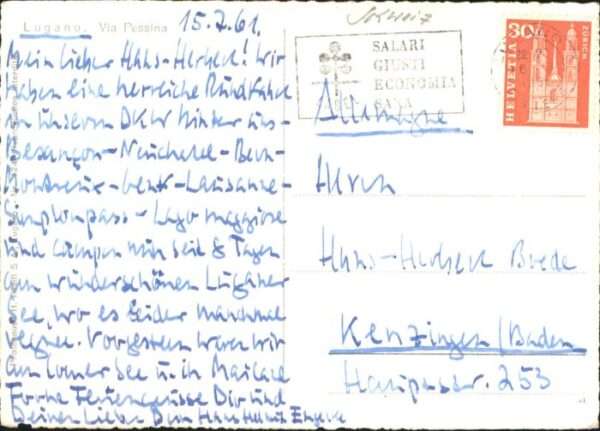 Lugano. Via Pessina
15.7.61.
Mein lieber Hans-Herbert! Wir
haben eine herrliche Rundfahrt
in unserm DKW hinter uns -
Besançon - Neuchatel - Bern -
Montreux - Genf - Lausanne -
Simplonpass - Lago maggiore
und campen nun seit 8 Tagen
am wunderschönen Luganer
See, wo es leider manchmal
regnet. Vorgestern waren wir
am Comer See u. in Mailand
Frohe Feriengrüsse Dir und
Deinen Lieben Dein Hans Heinz
Schweiz
SALARI
GIUSTI
ECONOMIA
SANA
30
HELVETIA
ZÜRICH
Allemagne
Herrn
Hans-Herbert Brede
Kenzingen/Baden
Hauptstr. 253